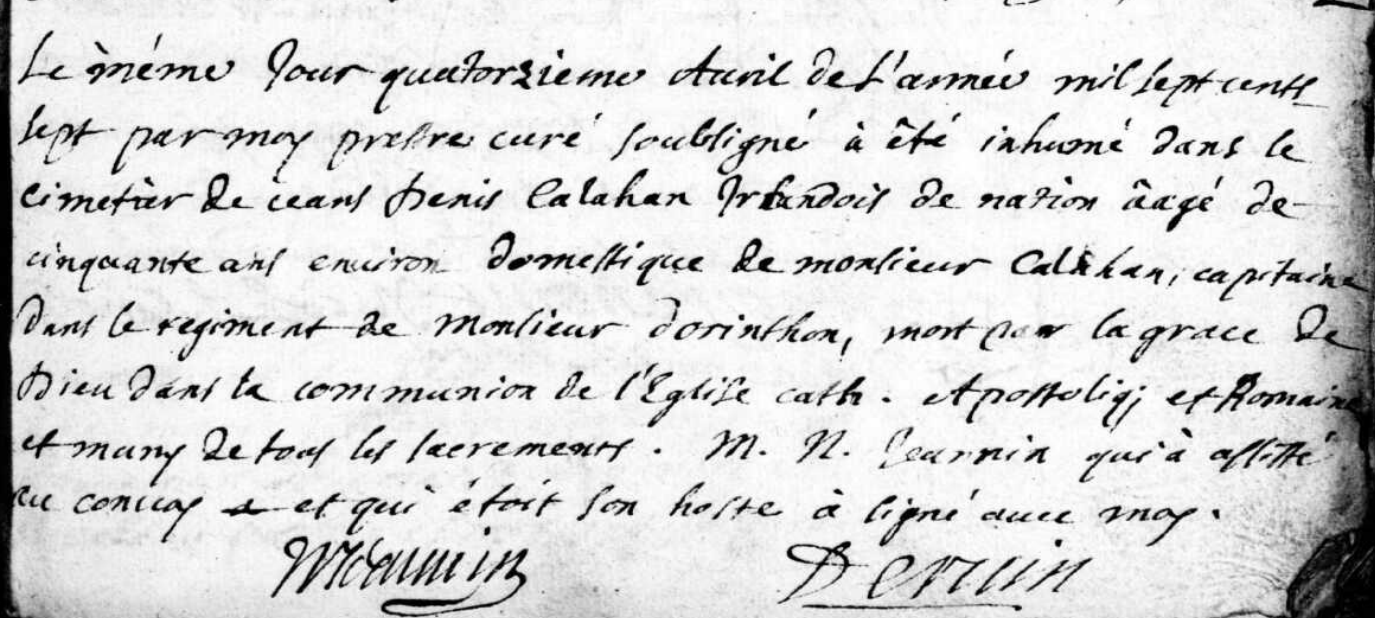 Le même Jour quatorzieme Auril de L'année mil sept cents
sept par moy prestre curé soubsigné à êté inhumé dans le
cimetier de ceans Denis Calahan Irlandois de nation âagé de
cinquante ans environ domestique de monsieur Calahan, capitaine
dans le regiment de monsieur dorinthon, mort par la grace de
Dieu dans la communion de l'Eglise cath. Apostoliq; et Romaine
et muny de tous les sacrements. M. N. qui à assisté
au conuoy et qui étoit son hoste à signé auec moy.